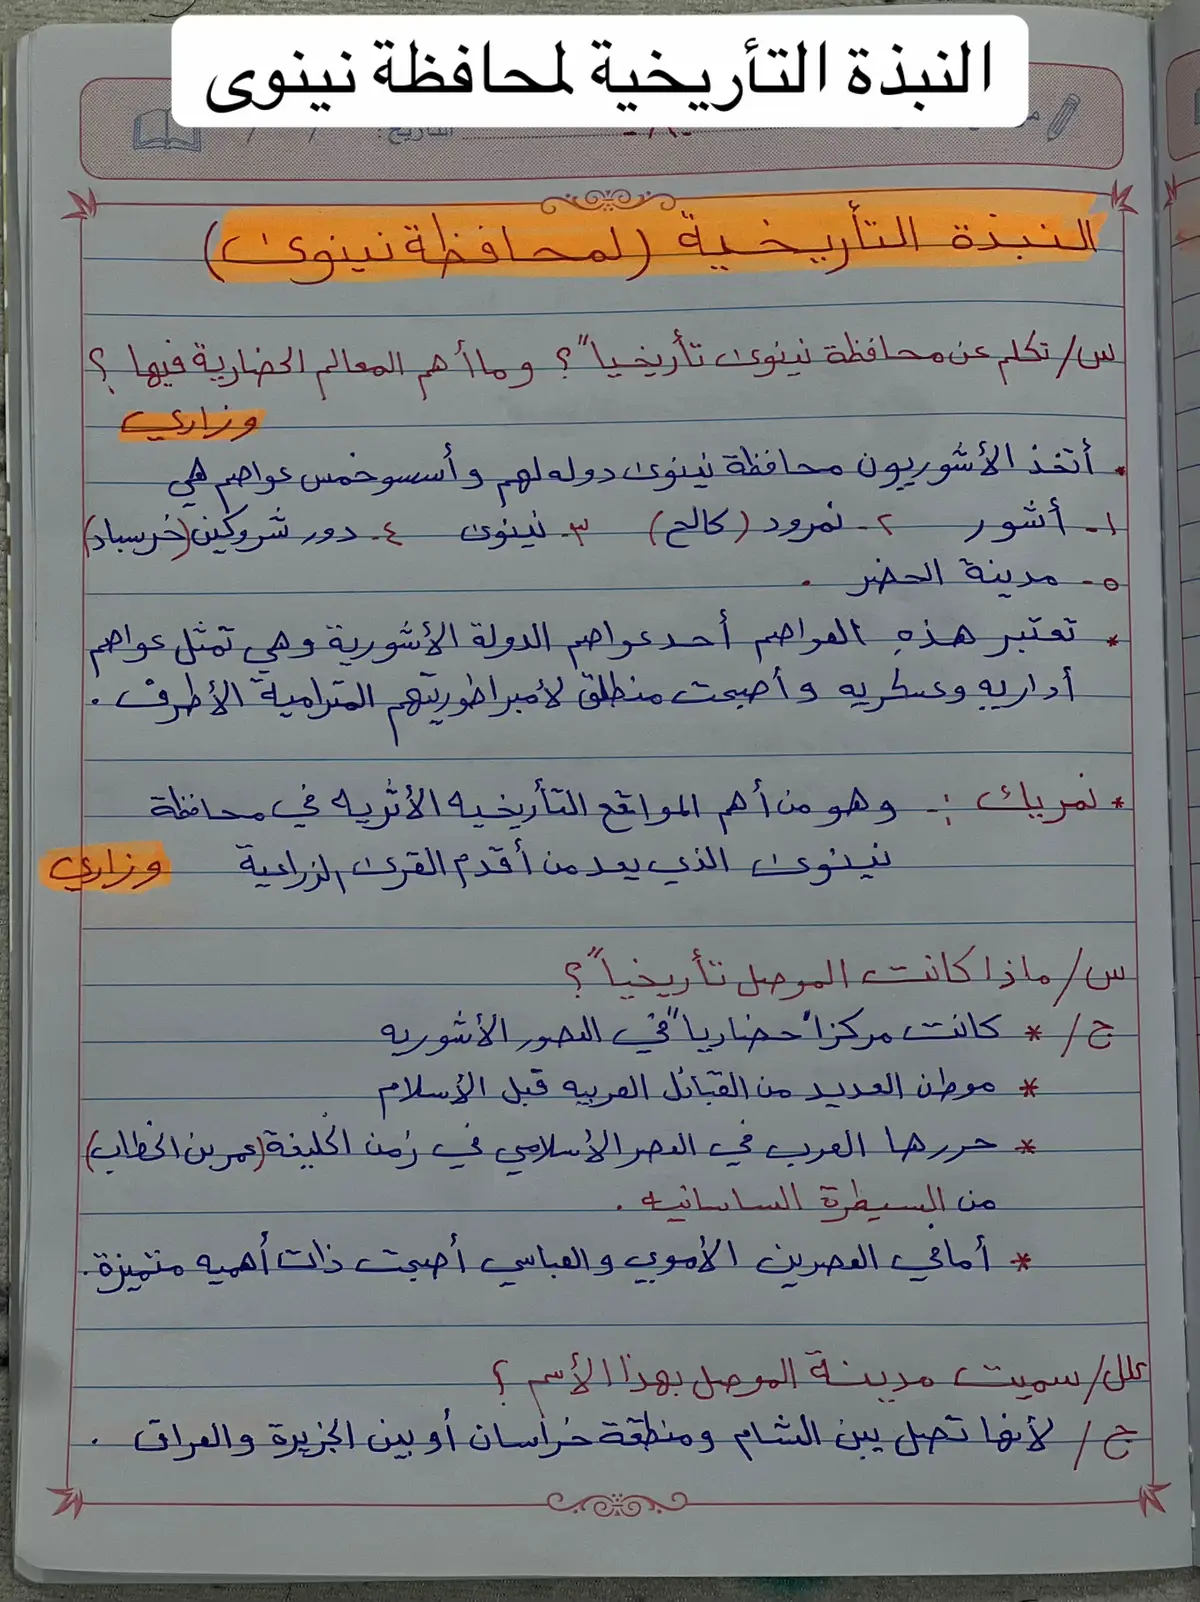 النبذة التأريخية لمحافظة نينوى
التاريخ: / /
النبذة التأريخية (لمحافظة نينوى)
س/ تكلم عن محافظة نينوى تأريخياً ؟ وما أهم المعالم الحضارية فيها ؟
وزاري
• أتخذ الأشوريون محافظة نينوى دوله لهم وأسسو خمس عواصم هي
١- أشور ٢- نمرود (كالح) ٣- نينوى ٤- دور شروكين (خرسباد)
٥- مدينة الحضر .
* تعتبر هذه العواصم أحد عواصم الدولة الأشورية وهي تمثل عواصم
أداريه وعسكريه وأصبحت منطلق لأمبراطوريتهم المترامية الأطرف .
* نمريك :- وهو من أهم المواقع التأريخيه الأثريه في محافظة
نينوى الذي يعد من أقدم القرى الزراعية وزاري
س/ ماذا كانت الموصل تأريخياً ؟
ج/ * كانت مركزاً حضارياً في العصور الأشوريه
* موطن العديد من القبائل العربيه قبل الأسلام
* حررها العرب في العصر الأسلامي في زمن الخليفة (عمر بن الخطاب)
من السيطرة الساسانيه .
* أما في العصرين الأموي والعباسي أصبحت ذات أهميه متميزة .
علل/ سميت مدينة الموصل بهذا الأسم ؟
ج/ لأنها تصل بين الشام ومنطقة خراسان أو بين الجزيرة والعراق .